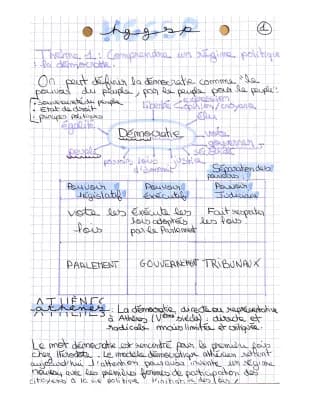 hggsp
1
Thème 1 : Comprendre un régime politique
: la démocratie.
On peut définir la démocratie comme "le
pouvoir du peuple, par le peuple, pour le peuple".
souveraineté du peuple
état de droit
principes politiques
expression
liberté opinion/moyens
égalité
Elu
Démocratie
vote
gouverner
peuple
sénateur
pouvoir
justice
Séparation des
pouvoirs
Pouvoir
législatif
Pouvoir
exécutif
Pouvoir
Judiciaire
vote les
lois
Exécute les
lois adoptées
par le Parlement
Fait respecter
les lois
PARLEMENT
GOUVERNEMENT
TRIBUNAUX
ATHÈNES
athènes
La démocratie, directe ou représentative
à Athènes : directe et
radicale mais limitée et critiquée.
Le mot démocratie est rencontré pour la première fois
chez Hérodote. Le modèle démocratique athénien retient
aujourd'hui l'attention puisqu'il invente un régime
nouveau avec les premières formes de participation des
citoyens à la vie politique